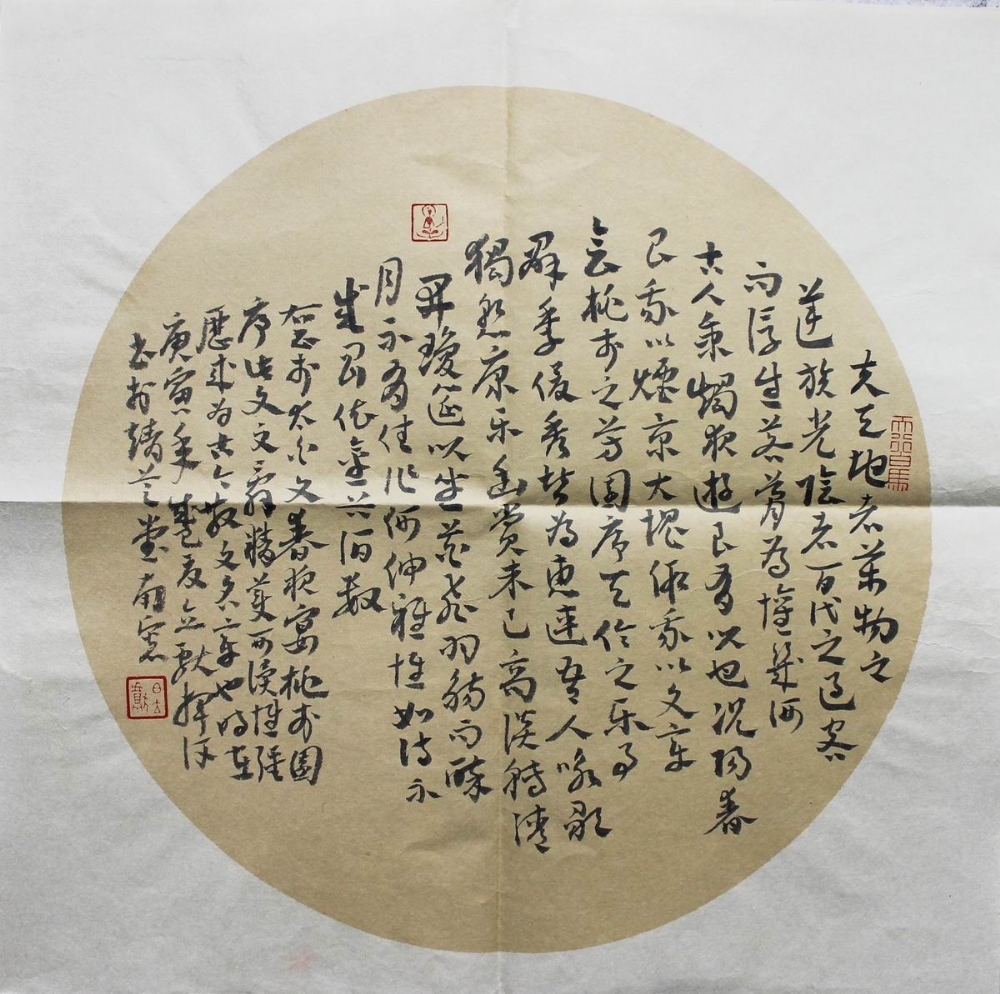 夫天地者萬物之
逆旅光陰者百代之過客
而浮生若夢為懽幾何
古人秉燭夜遊良有以也況陽春
召我以煙景大塊假我以文章
會桃李之芳園序天倫之乐事
群季俊秀皆為惠連吾人詠歌
獨慙康乐幽賞未已高談轉清
開瓊筵以坐花飛羽觴而醉
月不有佳作何伸雅懷如詩不
成罰依金谷酒數
李太白文春夜宴桃李園
序此文文辭精美可讀性強
歷来為古今散文名章也時在
庚寅年盛夏揮汗
書於靖堂南窗